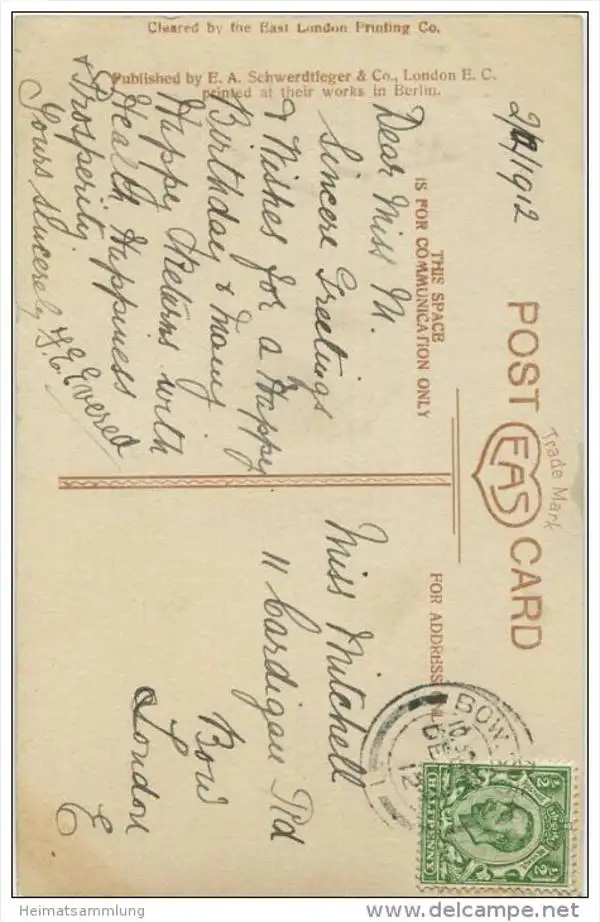 Cleared by the East London Printing Co.
Published by E. A. Schwerdtfeger & Co., London E. C.
printed at their works in Berlin.
POST CARD
EAS
Trade Mark
THIS SPACE
IS FOR COMMUNICATION ONLY
FOR ADDRESS
Dear Miss M.
Sincere Greetings
& Wishes for a Happy
Birthday & Many
Happy Returns with
Health Happiness
& Prosperity.
Yours sincerely
Miss Mitchell
11 Cardigan Rd
Bow
London
E
BOW
DE
12
HALFPENNY
Heimatsammlung
delcampe.net